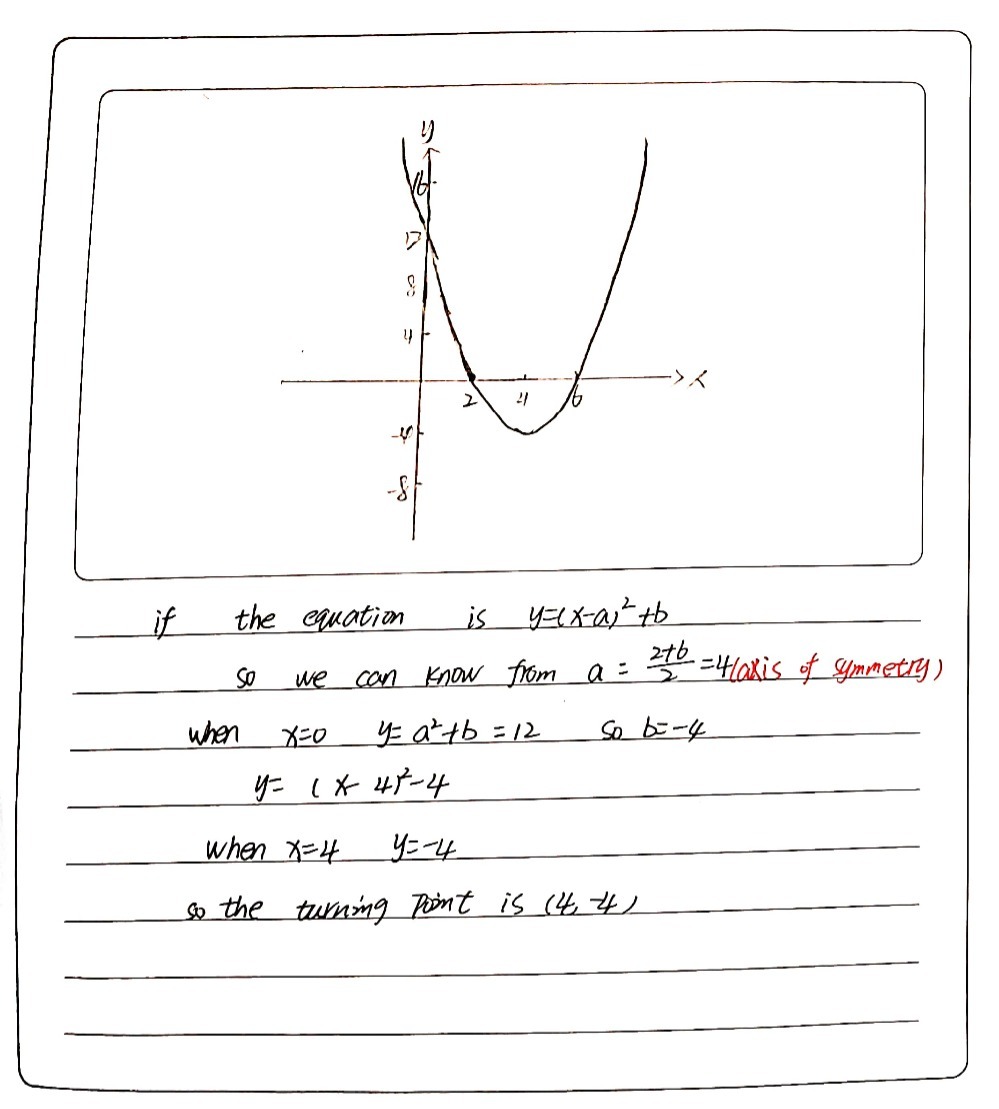 y
16
12
8
4
2 4 6 x
-4
-8
if the equation is y=(x-a)²+b
so we can know from a = (2+6)/2 = 4 (axis of symmetry)
when x=0 y= a²+b =12 so b=-4
y= (x- 4)²-4
when x=4 y=-4
so the turning Point is (4, -4)